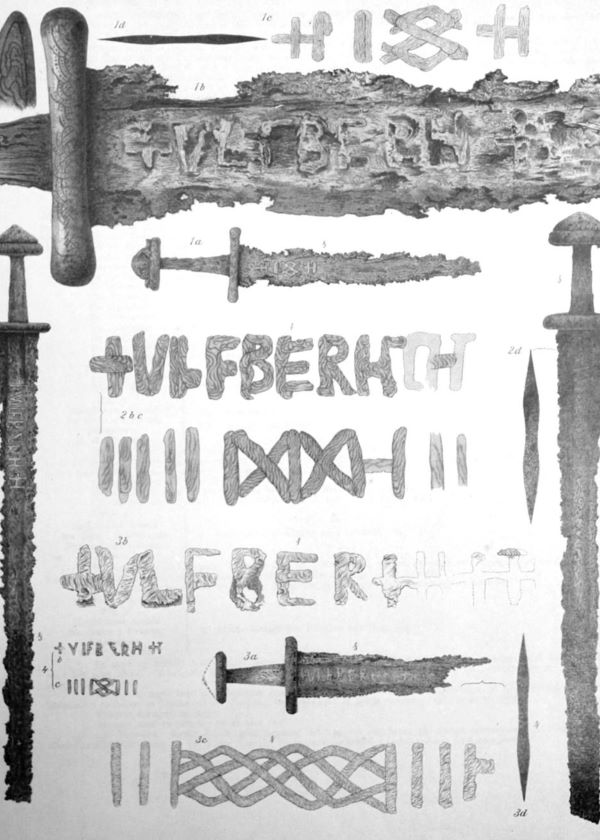 1d
1c
1b
+VLFBERH
1a
+VLFBERH+
2d
2 b c
3b
+VLFBERH
+VLFBERH+
b
4
c
3a
3c
4
3d